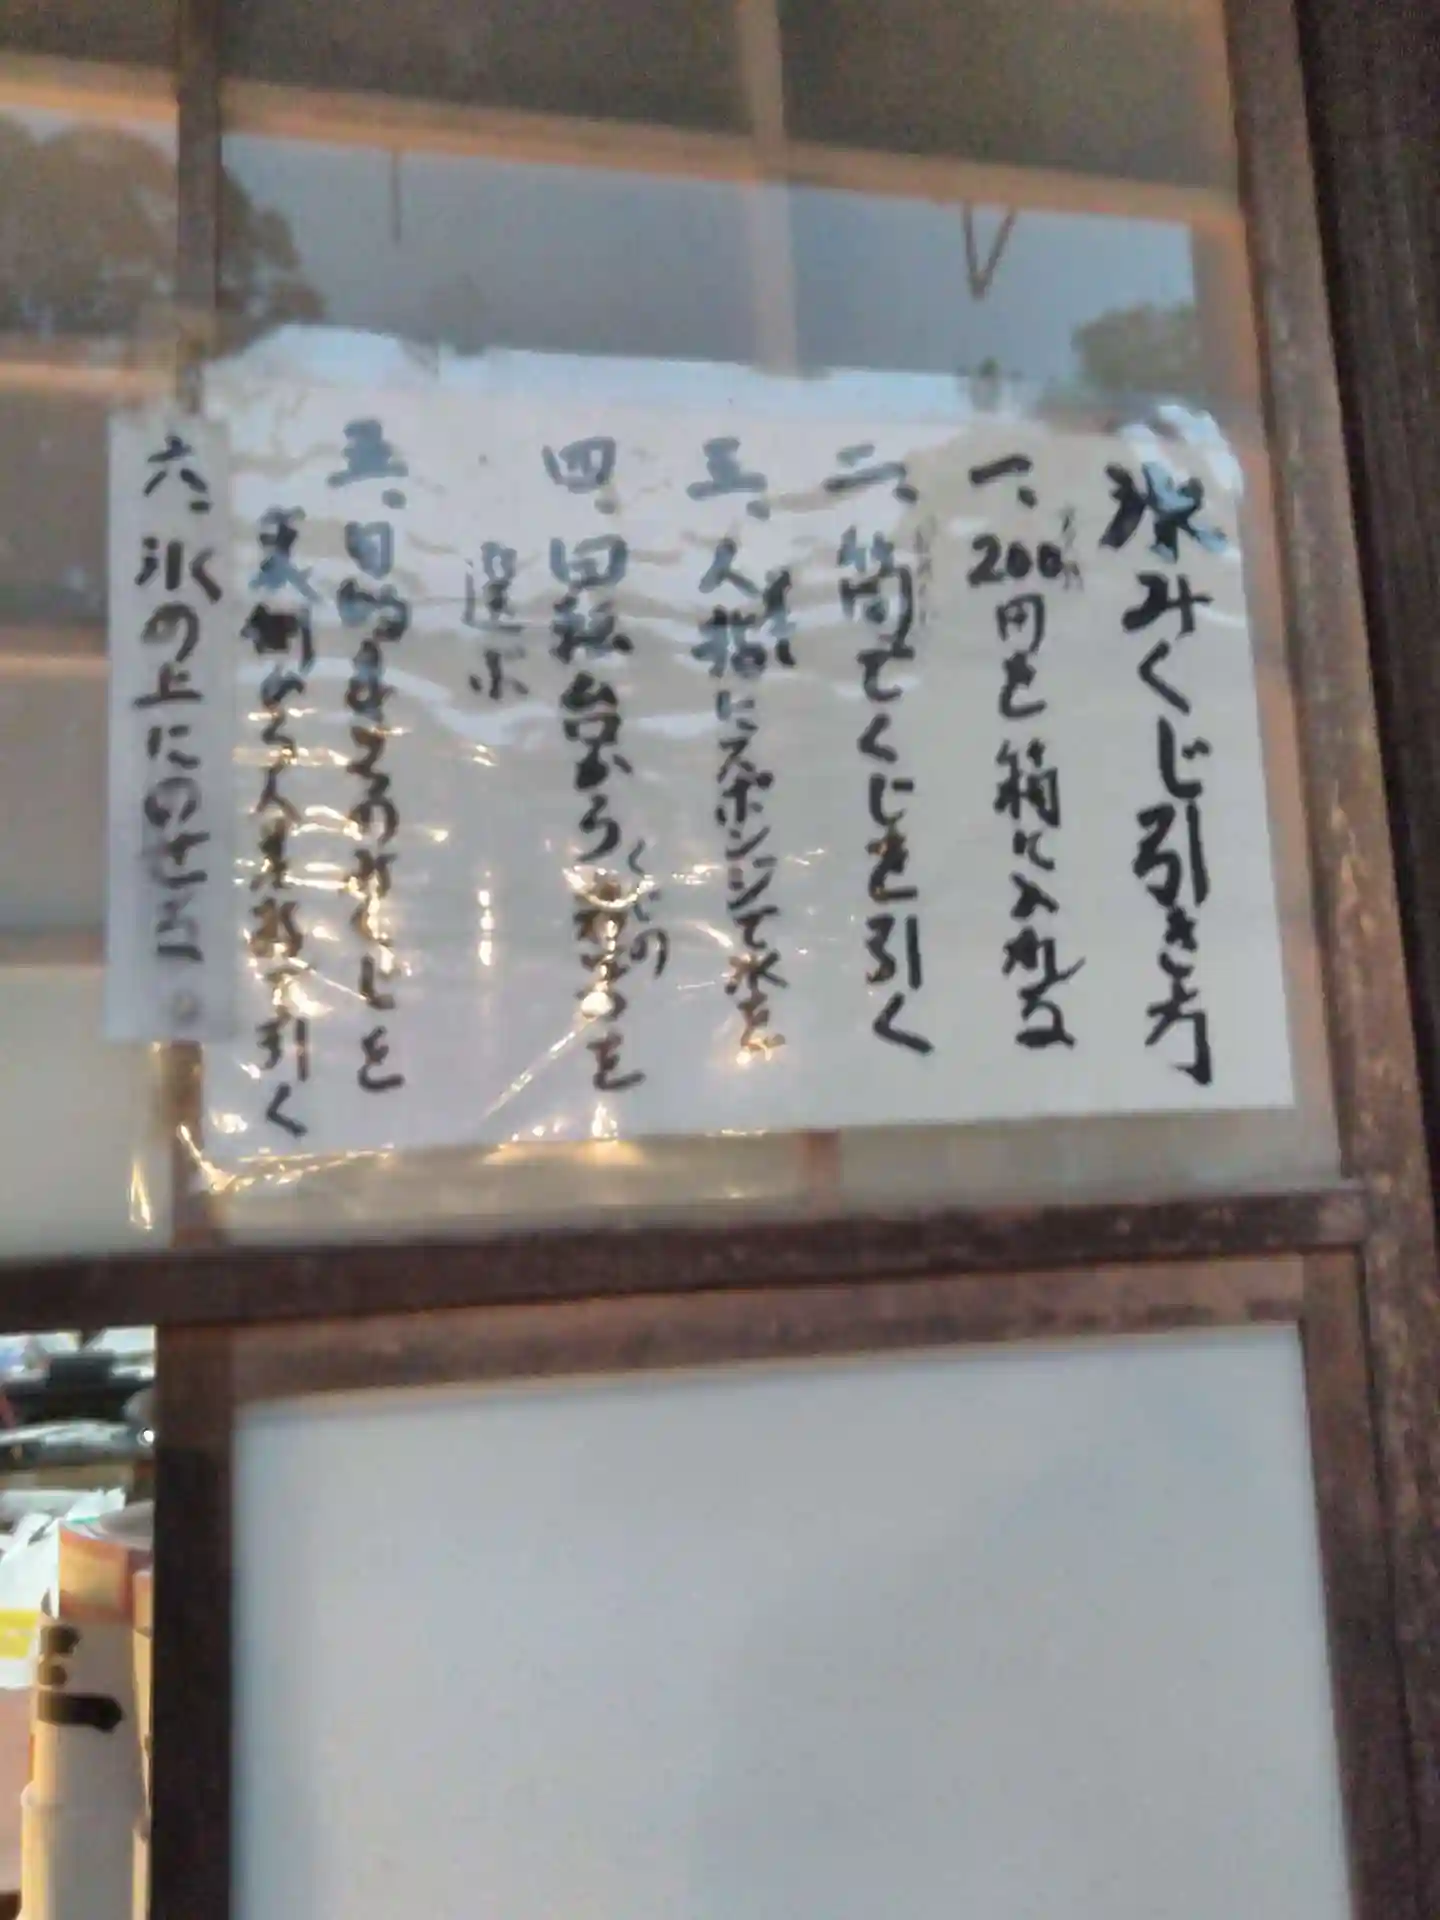 氷みくじ引き方
一、200円を箱に入れる
二、筒でくじを引く
三、人指にスポンジで水を
四、回転台から くじの を
選ぶ
五、目的 みくじを
裏側から人差 で引く
六、氷の上にのせる。